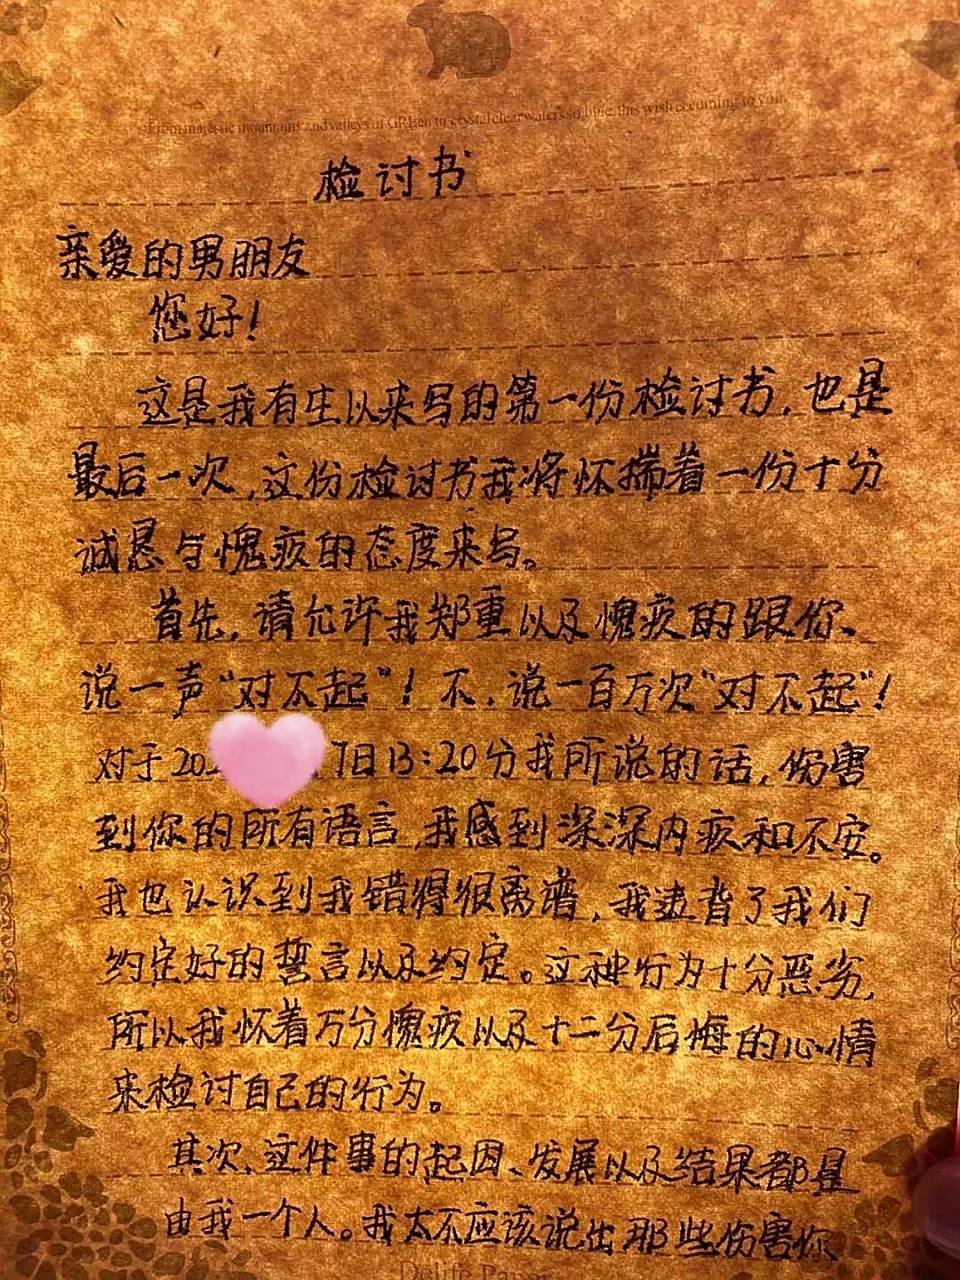 From majestic mountains and valleys of GREen to crystal clear waters so blue, this wish is coming to you.
检讨书
亲爱的男朋友
您好!
这是我有生以来写的第一份检讨书,也是
最后一次,这份检讨书我将怀揣着一份十分
诚恳与愧疚的态度来写。
首先,请允许我郑重以及愧疚的跟你、
说一声“对不起”!不,说一百万次“对不起”!
对于202 7日13:20分我所说的话,伤害
到你的所有语言,我感到深深内疚和不安。
我也认识到我错得很离谱,我违背了我们
约定好的誓言以及约定。这种行为十分恶劣,
所以我怀着万分愧疚以及十二分后悔的心情
来检讨自己的行为。
其次,这件事的起因、发展以及结果都是
由我一个人。我太不应该说出那些伤害你
Delife Paper